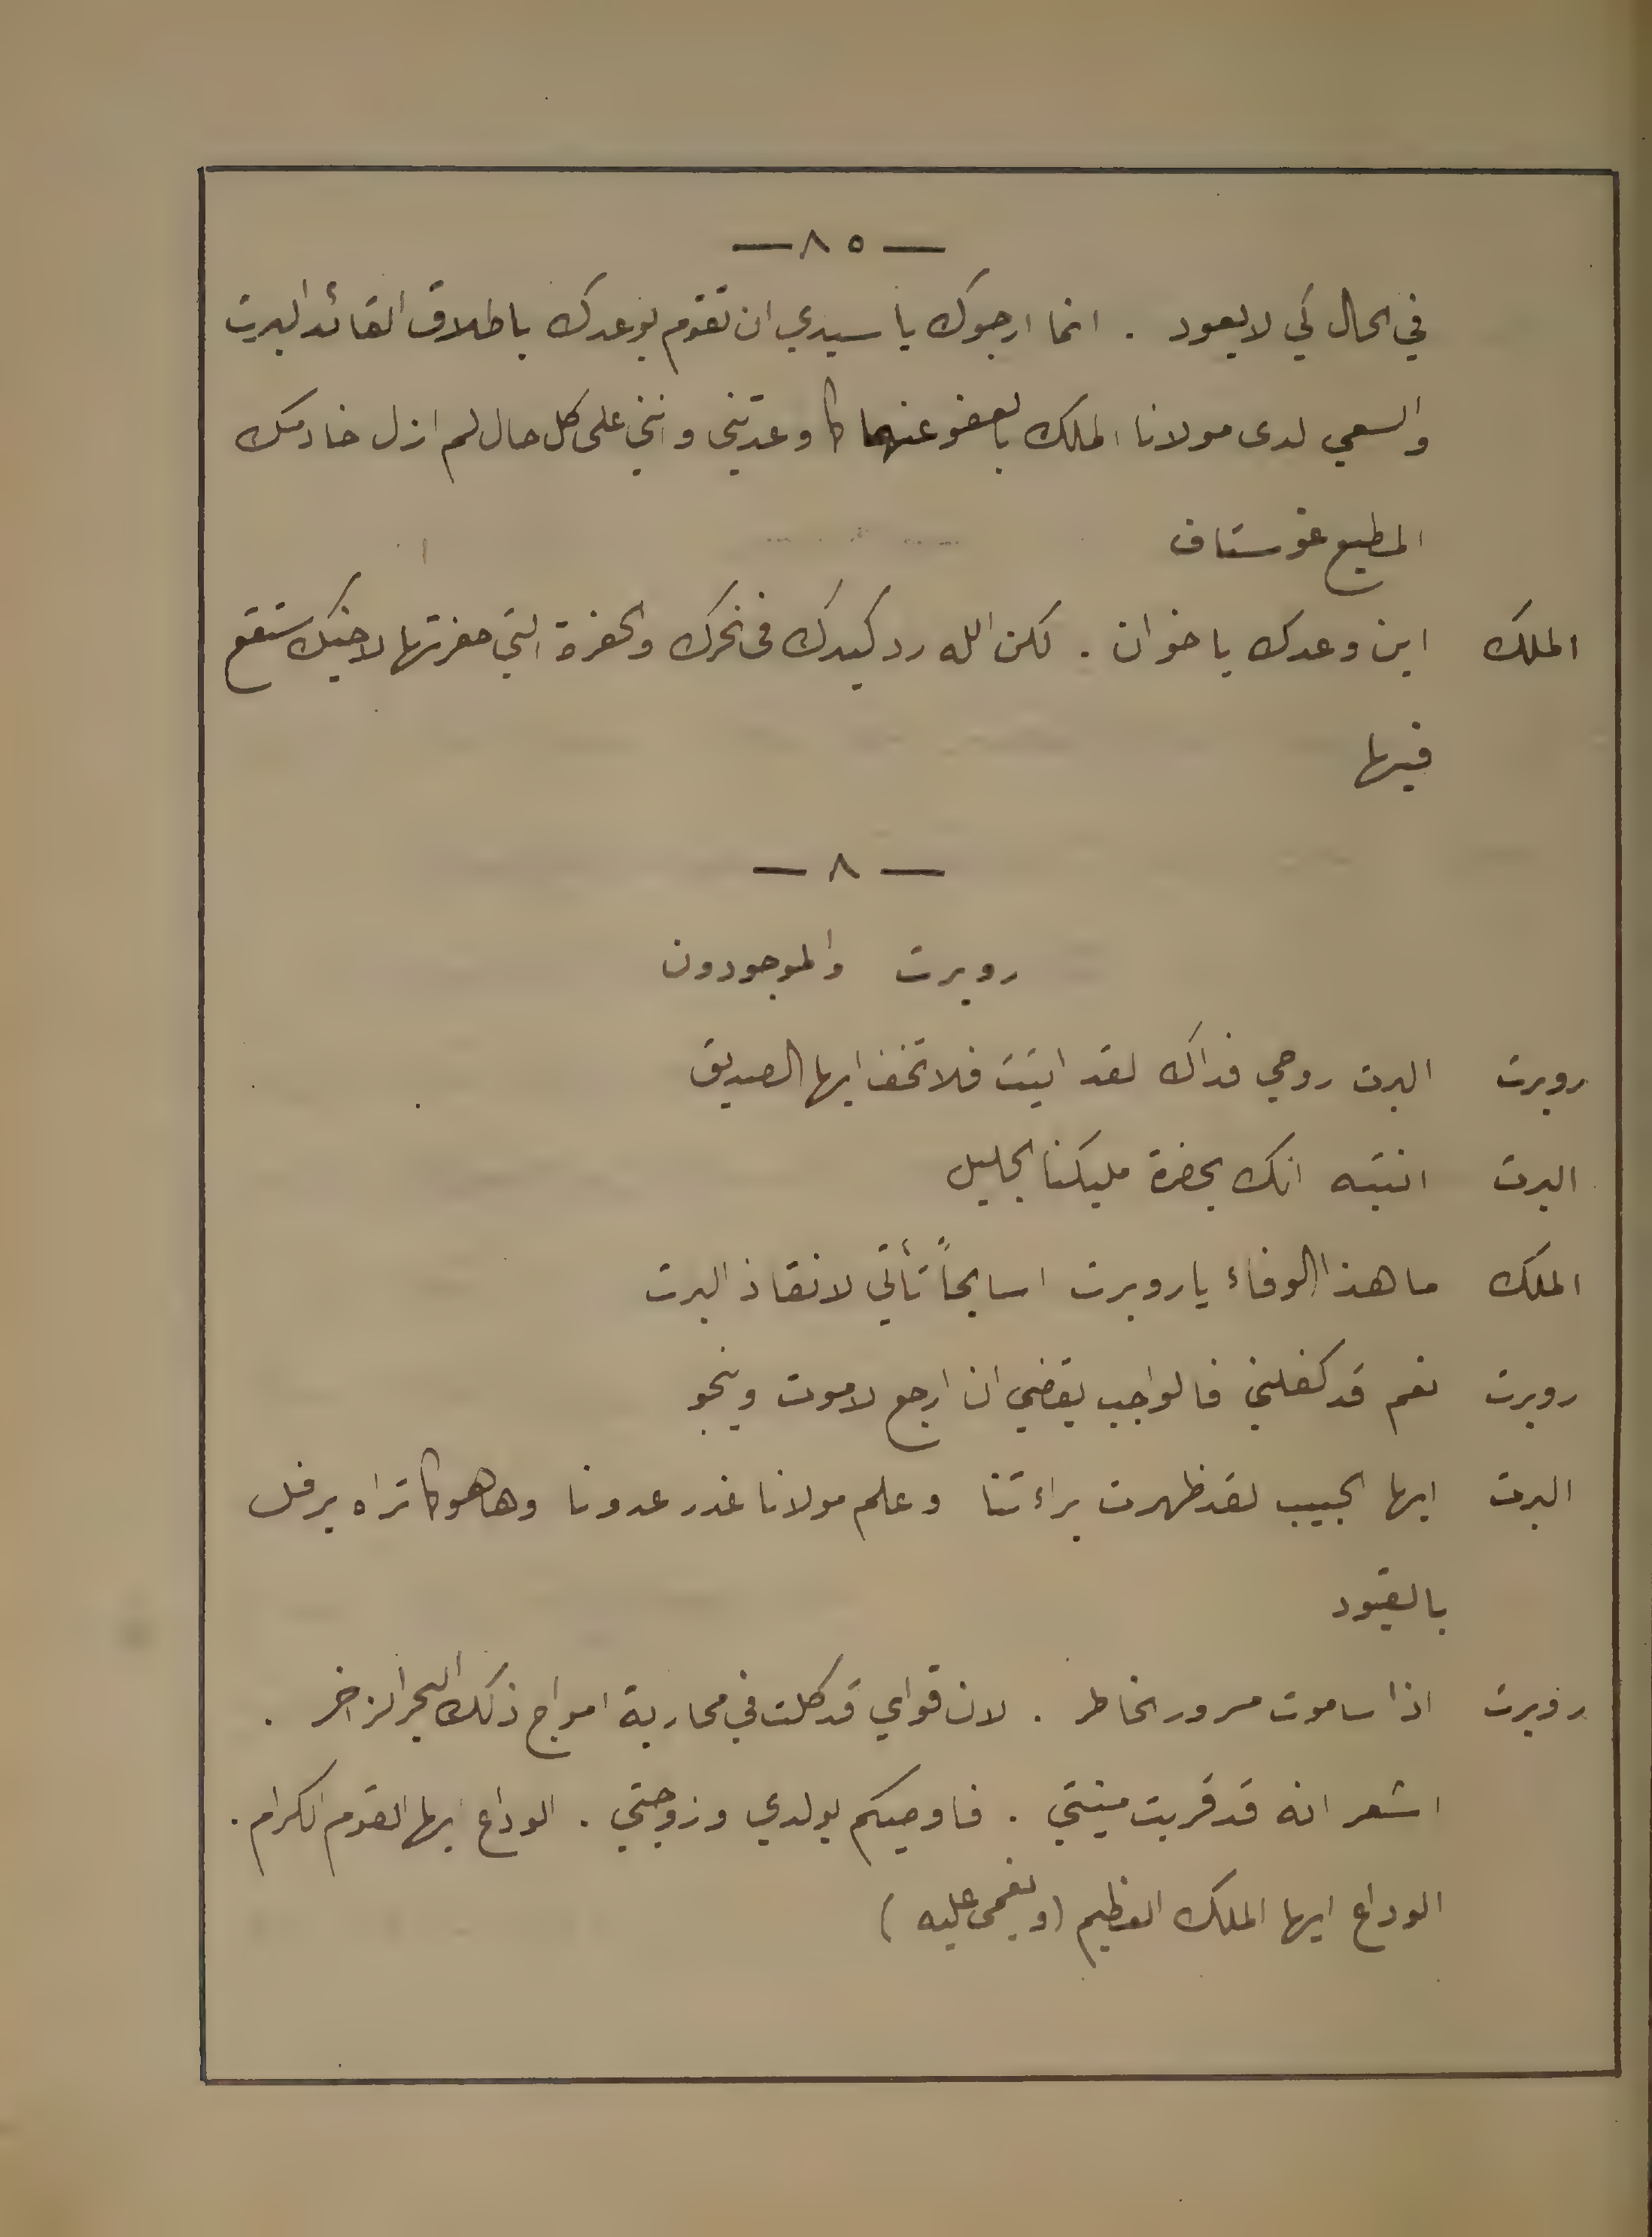 — ٨٥ —
في الحال لكي لا يعود . انما ارجوك يا سيدي ان تقوم بوعدك باطلاق القائد البرت
والسعي لدى مولانا الملك بالعفو عنهما كما وعدتني وانني على كل حال لم ازل خادمك
المطيع غوستاف
الملك اين وعدك يا خوان . لكن الله رد كيدك في نحرك والحفرة التي حفرتها لاخيك ستقع
فيها
— ٨ —
روبرت والموجودون
روبرت البرت روحي فداك لقد اتيت فلا تخف ايها الصديق
البرت انتبه انك بحضرة مليكنا الجليل
الملك ما هذا الوفاء يا روبرت اسابحاً تأتي لانقاذ البرت
روبرت نعم قد كفلني فالواجب يقضي ان ارجع لاموت وينجو
البرت ايها الحبيب لقد ظهرت براءتنا وعلم مولانا غدر عدونا وها هو كما تراه يرفل
بالقيود
روبرت اذا ساموت مسرور الخاطر . لان قواي قد كلت في محاربة امواج ذلك البحر الزاخر .
اشعر انه قد قربت منيتي . فاوصيكم بولدي وزوجتي . الوداع ايها القوم الكرام .
الوداع ايها الملك العظيم (ويغمى عليه )